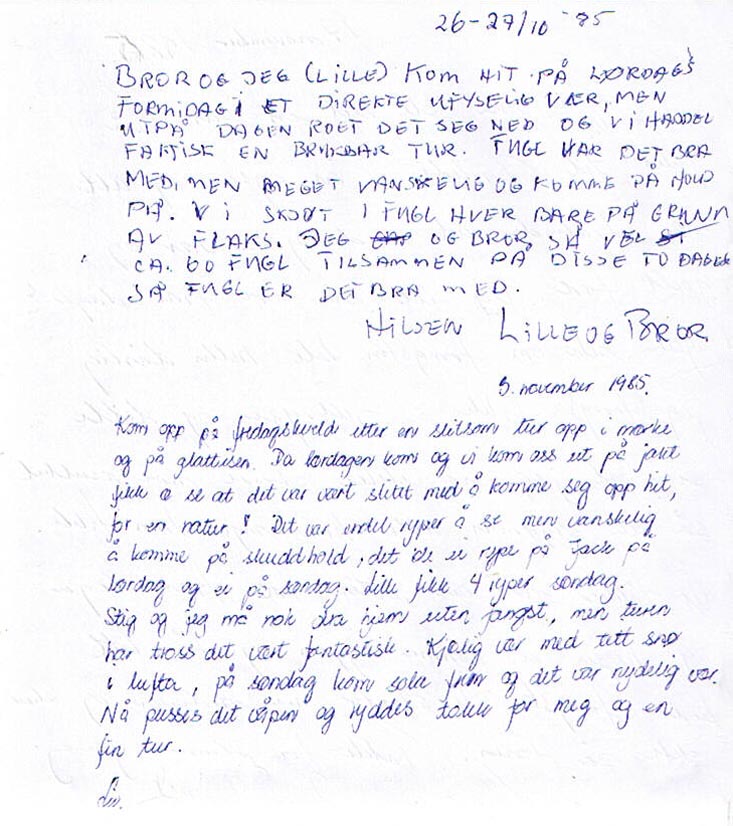 26-27/10 85
BROR OG JEG (LILLE) KOM HIT PÅ LØRDAGS
FORMIDAG I ET DIREKTE UFYSELIG VÆR, MEN
UTPÅ DAGEN ROET DET SEG NED OG VI HADDE
FAKTISK EN BRUKBAR TUR. FUGL VAR DET BRA
MED, MEN MEGET VANSKELIG OG KOMME PÅ HOLD
PÅ. VI SKJØT 1 FUGL HVER BARE PÅ GRUNN
AV FLAKS. JEG OG BROR SÅ VEL
CA. 60 FUGL TILSAMMEN PÅ DISSE TO DAGER
SÅ FUGL ER DET BRA MED.
HILSEN LILLE OG BROR
3. november 1985.
Kom opp på fredagskveld etter en slitsom tur opp i mørke
og på glattisen. Da lørdagen kom og vi kom oss ut på jakt
fikk å se at det var vært slitet med å komme seg opp hit,
for en natur! Det var endel ryper å se men vanskelig
å komme på skuddhold, det ble ei rype på Jack på
lørdag og ei på søndag. Lille fikk 4 ryper søndag.
Stig og jeg må nok dra hjem uten fangst, men turen
har tross det vært fantastisk. Kjølig vær med tett snø
i lufta, på søndag kom sola frem og det var nydelig vær.
Nå pusses det våpen og ryddes takk for meg og en
fin tur.
Liv.